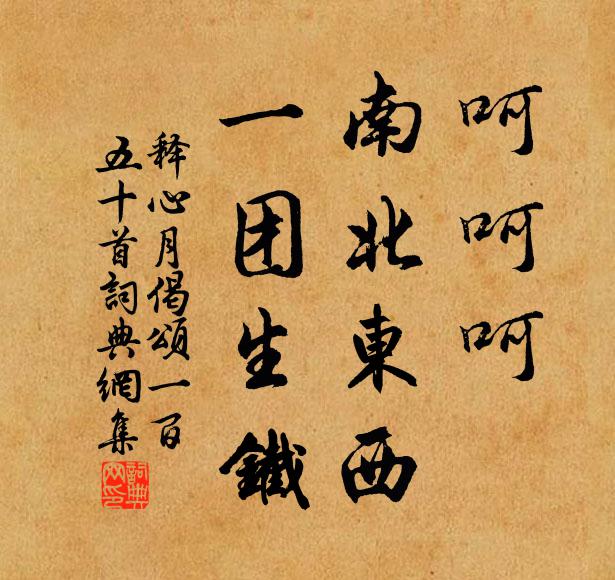 呵呵呵
南北東西
一团生鐵
释心月偈頌一百
五十首詞典網集
詞典
网印